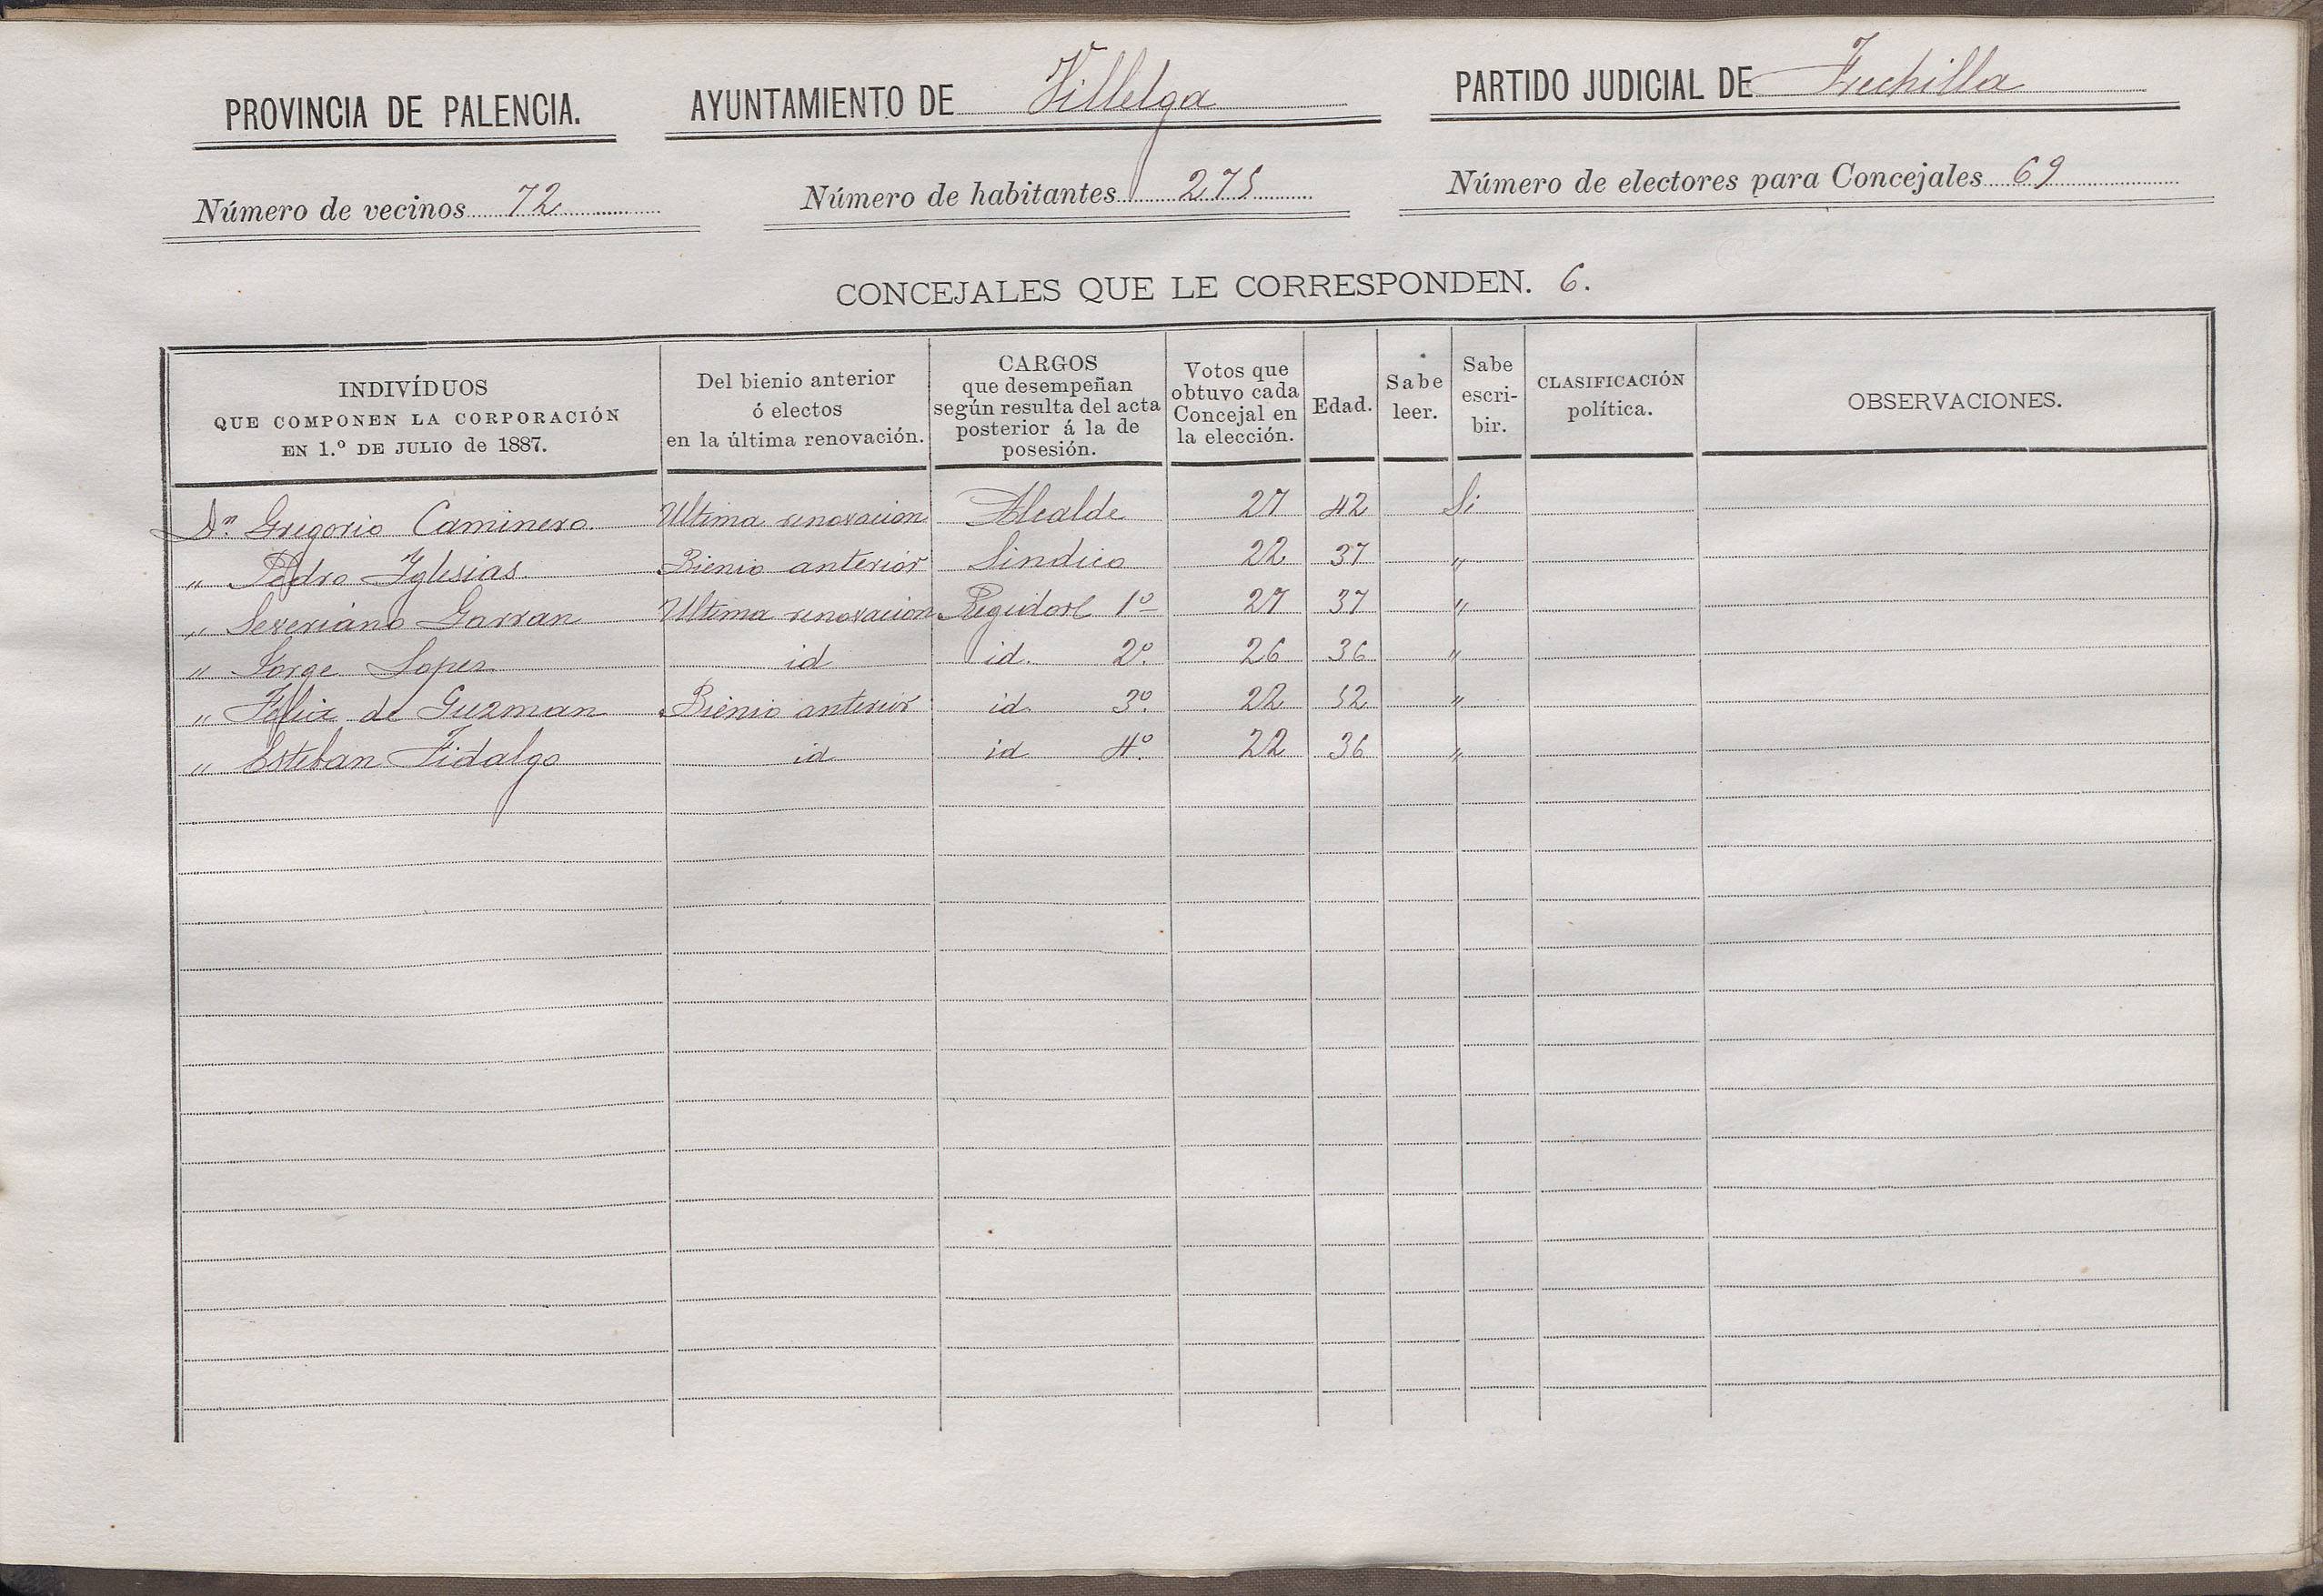 PROVINCIA DE PALENCIA. AYUNTAMIENTO DE Villelga PARTIDO JUDICIAL DE Frechilla
Número de vecinos 72 Número de habitantes 275 Número de electores para Concejales 69
CONCEJALES QUE LE CORRESPONDEN. 6.
INDIVÍDUOS QUE COMPONEN LA CORPORACIÓN EN 1.º DE JULIO de 1887. Del bienio anterior ó electos en la última renovación. CARGOS que desempeñan según resulta del acta posterior á la de posesión. Votos que obtuvo cada Concejal en la elección. Edad. Sabe leer. Sabe escribir. CLASIFICACIÓN política. OBSERVACIONES.
Dn. Gregorio Caminero Ultima renovacion Alcalde 27 42 Si
" Pedro Iglesias Bienio anterior Sindico 22 37 "
" Severiano Garran Ultima renovacion Regidor 1º 27 37 "
" Jorge Lopez id id. 2º. 26 36 "
" Felix de Guzman Bienio anterior id. 3º. 22 52 "
" Esteban Fidalgo id id 4º. 22 36 "